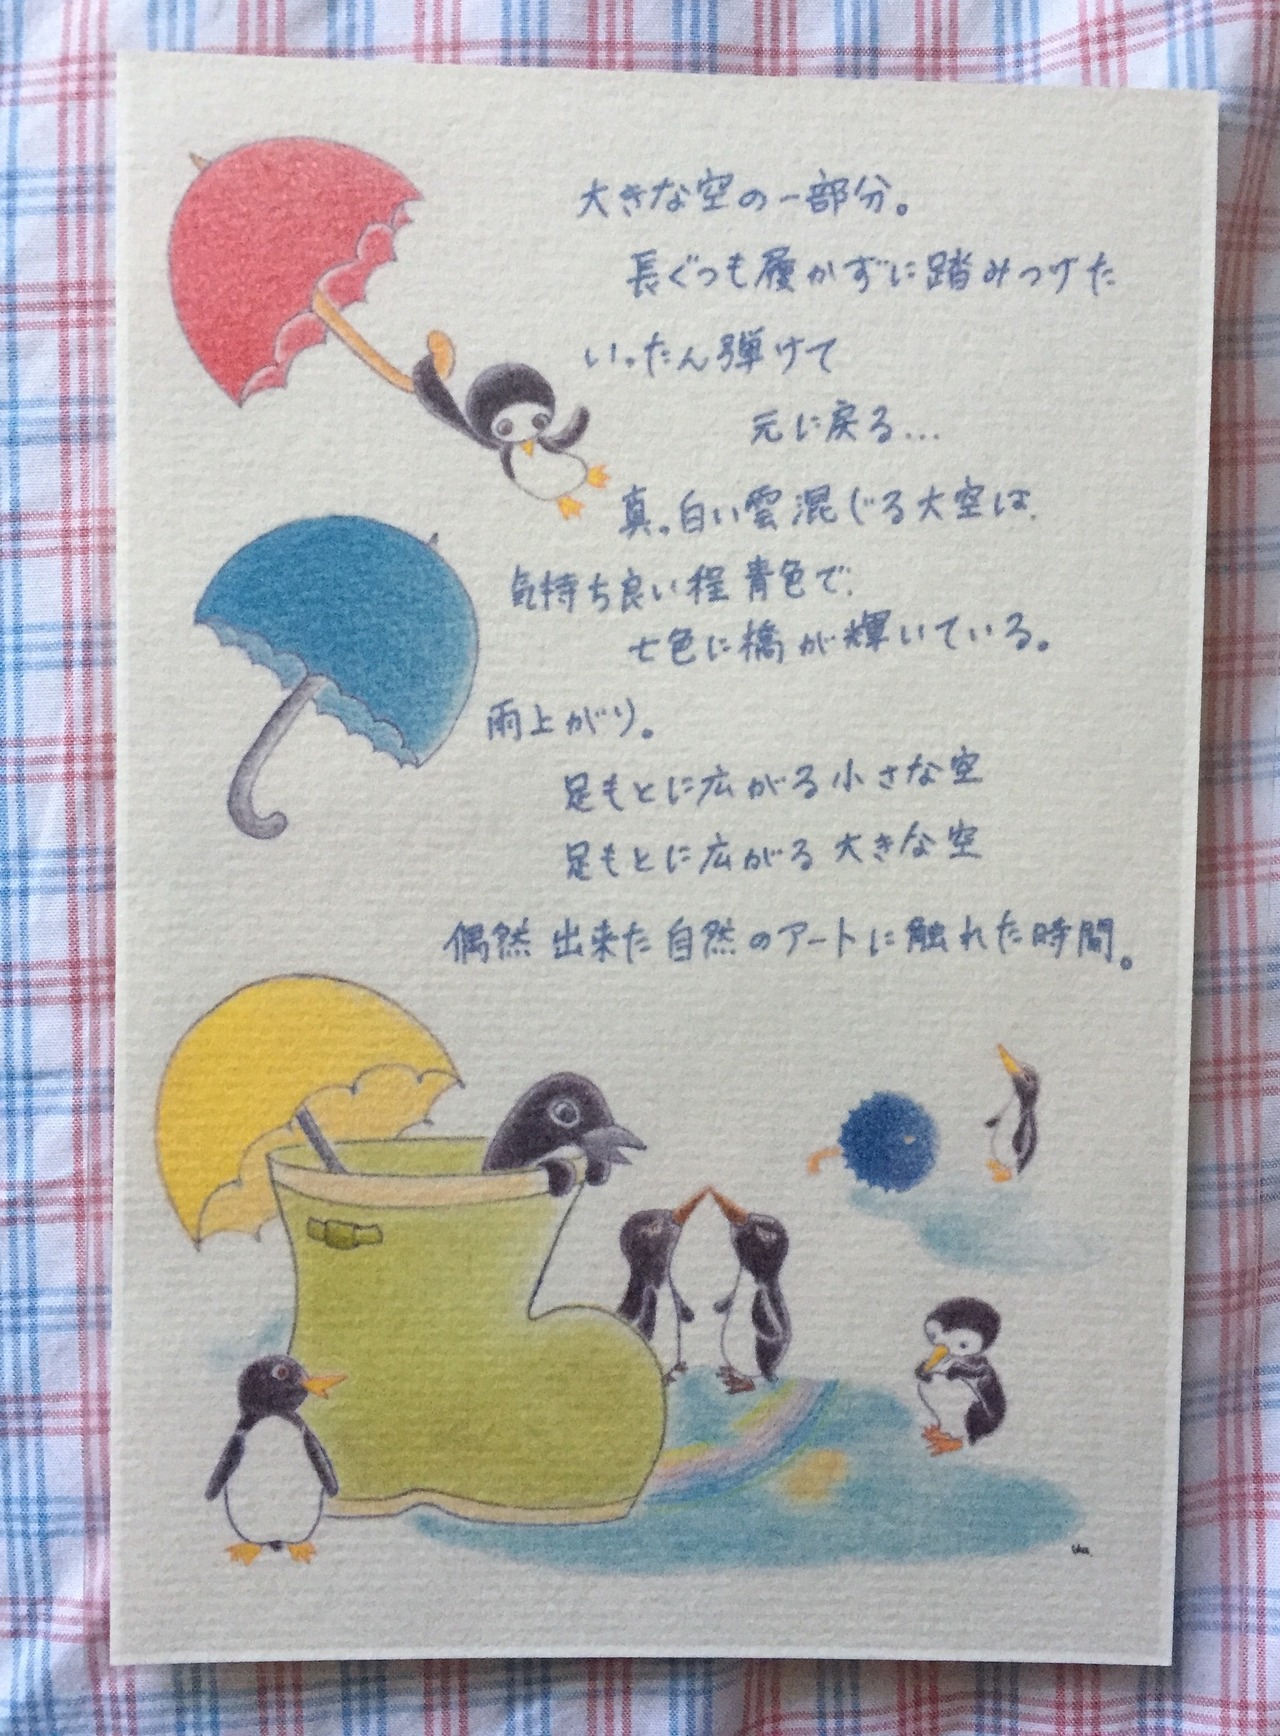 大きな空の一部分。
長ぐつも履かずに踏みつけた
いったん弾けて
元に戻る...
真っ白い雲混じる大空は、
気持ち良い程青色で、
七色に橋が輝いている。
雨上がり。
足もとに広がる小さな空
足もとに広がる大きな空
偶然出来た自然のアートに触れた時間。